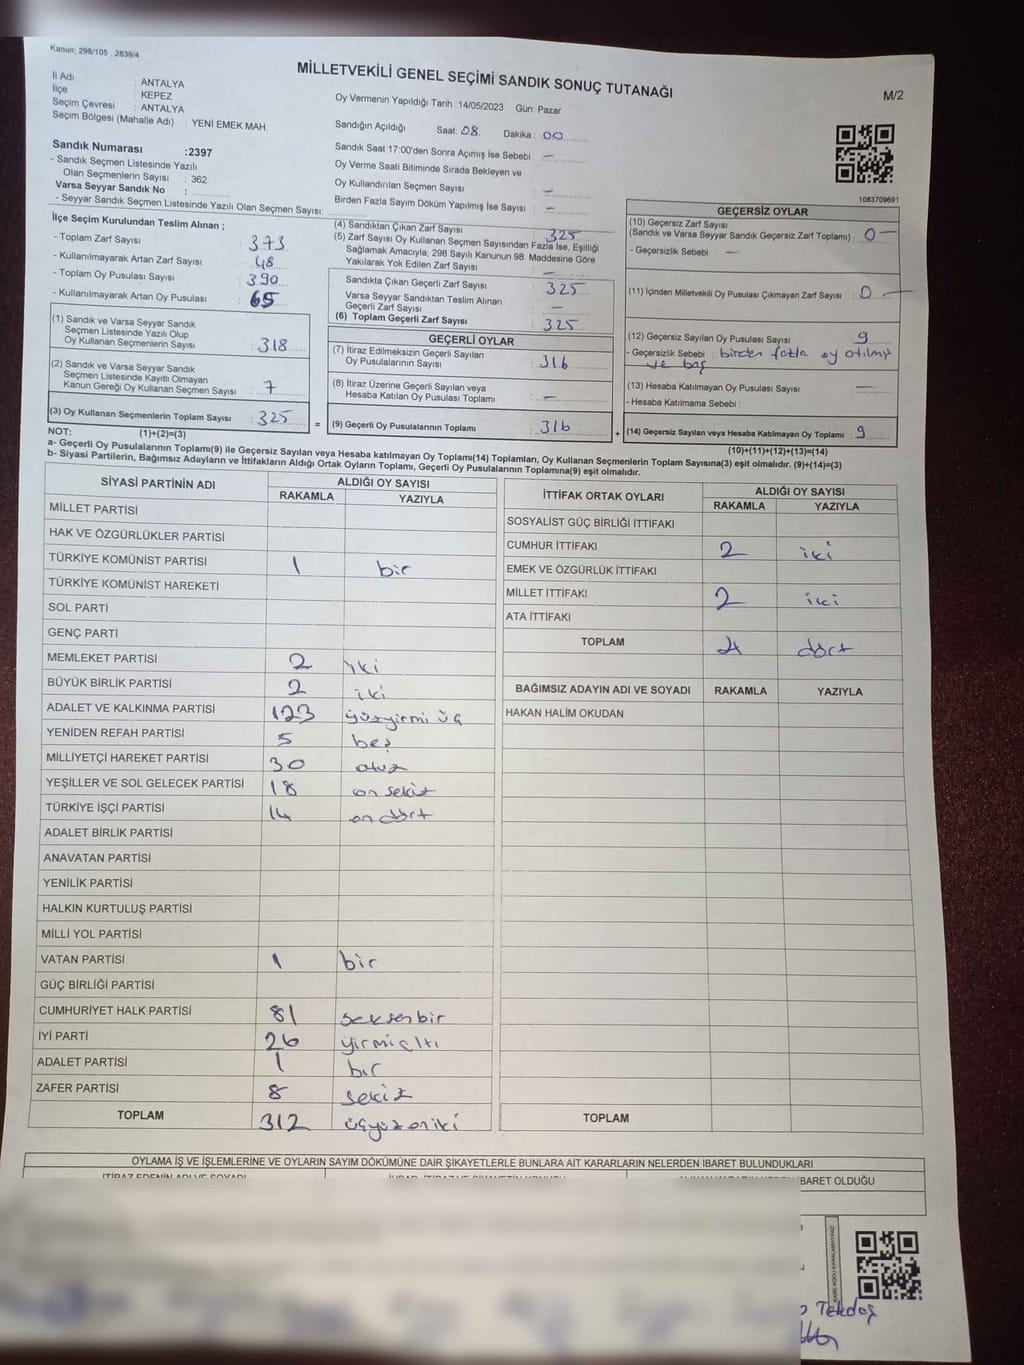 Kanun; 298/105 , 2839/4
MİLLETVEKİLİ GENEL SEÇİMİ SANDIK SONUÇ TUTANAĞI
M/2
İl Adı : ANTALYA
İlçe : KEPEZ
Seçim Çevresi : ANTALYA
Seçim Bölgesi (Mahalle Adı) : YENİ EMEK MAH.
Sandık Numarası :2397
- Sandık Seçmen Listesinde Yazılı
Olan Seçmenlerin Sayısı : 362
Varsa Seyyar Sandık No :
- Seyyar Sandık Seçmen Listesinde Yazılı Olan Seçmen Sayısı:
Oy Vermenin Yapıldığı Tarih :14/05/2023 Gün: Pazar
Sandığın Açıldığı Saat: 08 Dakika : 00
Sandık Saat 17:00'den Sonra Açımış İse Sebebi : —
Oy Verme Saati Bitiminde Sırada Bekleyen ve
Oy Kullandırılan Seçmen Sayısı : —
Birden Fazla Sayım Döküm Yapılmış İse Sayısı : —
1083709691
İlçe Seçim Kurulundan Teslim Alınan ;
- Toplam Zarf Sayısı : 373
- Kullanılmayarak Artan Zarf Sayısı : 48
- Toplam Oy Pusulası Sayısı : 390
- Kullanılmayarak Artan Oy Pusulası : 65
(1) Sandık ve Varsa Seyyar Sandık
Seçmen Listesinde Yazılı Olup
Oy Kullanan Seçmenlerin Sayısı : 318
(2) Sandık ve Varsa Seyyar Sandık
Seçmen Listesinde Kayıtlı Olmayan
Kanun Gereği Oy Kullanan Seçmen Sayısı : 7
(3) Oy Kullanan Seçmenlerin Toplam Sayısı : 325
(4) Sandıktan Çıkan Zarf Sayısı : 325
(5) Zarf Sayısı Oy Kullanan Seçmen Sayısından Fazla İse, Eşitliği
Sağlamak Amacıyla; 298 Sayılı Kanunun 98. Maddesine Göre
Yakılarak Yok Edilen Zarf Sayısı : —
Sandıkta Çıkan Geçerli Zarf Sayısı : 325
Varsa Seyyar Sandıktan Teslim Alınan
Geçerli Zarf Sayısı : —
(6) Toplam Geçerli Zarf Sayısı : 325
GEÇERLİ OYLAR
(7) İtiraz Edilmeksizin Geçerli Sayılan
Oy Pusulalarının Sayısı : 316
(8) İtiraz Üzerine Geçerli Sayılan veya
Hesaba Katılan Oy Pusulası Toplamı : —
= (9) Geçerli Oy Pusulalarının Toplamı : 316
GEÇERSİZ OYLAR
(10) Geçersiz Zarf Sayısı
(Sandık ve Varsa Seyyar Sandık Geçersiz Zarf Toplamı) : 0 —
- Geçersizlik Sebebi : —
(11) İçinden Milletvekili Oy Pusulası Çıkmayan Zarf Sayısı : 0 —
(12) Geçersiz Sayılan Oy Pusulası Sayısı : 9
- Geçersizlik Sebebi : birden fazla oy atılmış
ve boş
(13) Hesaba Katılmayan Oy Pusulası Sayısı : —
- Hesaba Katılmama Sebebi :
+ (14) Geçersiz Sayılan veya Hesaba Katılmayan Oy Toplamı : 9
NOT: (1)+(2)=(3)
(10)+(11)+(12)+(13)=(14)
a- Geçerli Oy Pusulalarının Toplamı(9) ile Geçersiz Sayılan veya Hesaba katılmayan Oy Toplamı(14) Toplamları, Oy Kullanan Seçmenlerin Toplam Sayısına(3) eşit olmalıdır. (9)+(14)=(3)
b- Siyasi Partilerin, Bağımsız Adayların ve İttifakların Aldığı Ortak Oyların Toplamı, Geçerli Oy Pusulalarının Toplamına(9) eşit olmalıdır.
SİYASİ PARTİNİN ADI ALDIĞI OY SAYISI
RAKAMLA YAZIYLA
MİLLET PARTİSİ
HAK VE ÖZGÜRLÜKLER PARTİSİ
TÜRKİYE KOMÜNİST PARTİSİ 1 bir
TÜRKİYE KOMÜNİST HAREKETİ
SOL PARTİ
GENÇ PARTİ
MEMLEKET PARTİSİ 2 iki
BÜYÜK BİRLİK PARTİSİ 2 iki
ADALET VE KALKINMA PARTİSİ 123 yüzyirmi üç
YENİDEN REFAH PARTİSİ 5 beş
MİLLİYETÇİ HAREKET PARTİSİ 30 otuz
YEŞİLLER VE SOL GELECEK PARTİSİ 18 on sekiz
TÜRKİYE İŞÇİ PARTİSİ 14 on dört
ADALET BİRLİK PARTİSİ
ANAVATAN PARTİSİ
YENİLİK PARTİSİ
HALKIN KURTULUŞ PARTİSİ
MİLLİ YOL PARTİSİ
VATAN PARTİSİ 1 bir
GÜÇ BİRLİĞİ PARTİSİ
CUMHURİYET HALK PARTİSİ 81 seksenbir
İYİ PARTİ 26 yirmialtı
ADALET PARTİSİ 1 bir
ZAFER PARTİSİ 8 sekiz
TOPLAM 312 üçyüzoniki
İTTİFAK ORTAK OYLARI ALDIĞI OY SAYISI
RAKAMLA YAZIYLA
SOSYALİST GÜÇ BİRLİĞİ İTTİFAKI
CUMHUR İTTİFAKI 2 iki
EMEK VE ÖZGÜRLÜK İTTİFAKI
MİLLET İTTİFAKI 2 iki
ATA İTTİFAKI
TOPLAM 4 dört
BAĞIMSIZ ADAYIN ADI VE SOYADI RAKAMLA YAZIYLA
HAKAN HALİM OKUDAN
TOPLAM
OYLAMA İŞ VE İŞLEMLERİNE VE OYLARIN SAYIM DÖKÜMÜNE DAİR ŞİKAYETLERLE BUNLARA AİT KARARLARIN NELERDEN İBARET BULUNDUKLARI
İTİRAZ EDENİN ADI VE SOYADI
BARET OLDUĞU
Tekdoğ